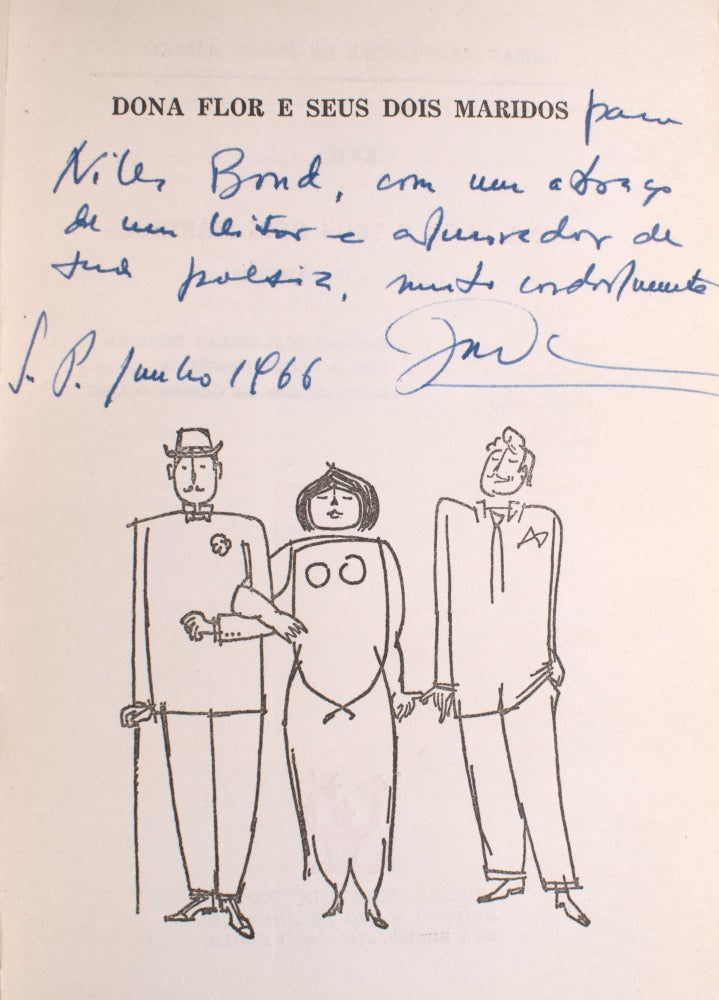 DONA FLOR E SEUS DOIS MARIDOS para
Niles Bond, com um abraço
de um leitor e admirador de
sua poesia, muito cordialmente
S. P. junho 1966